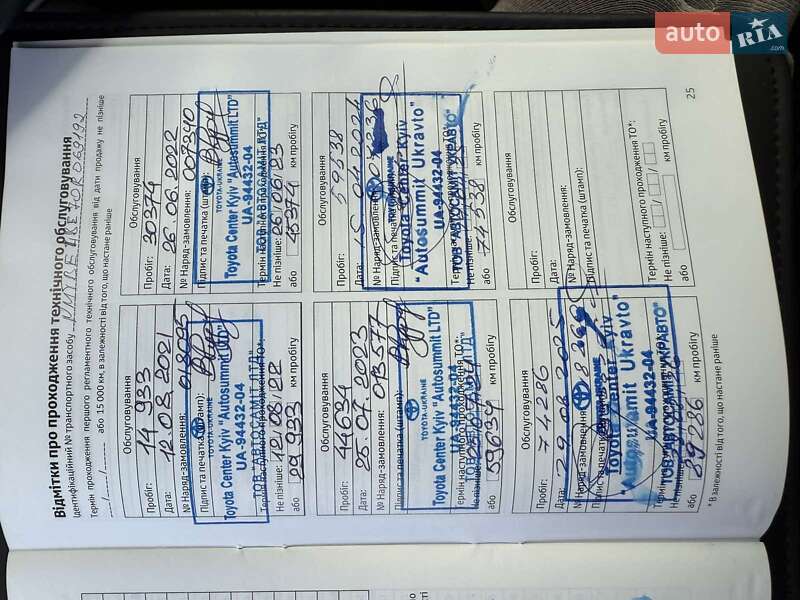 auto RIA .com
Відмітки про проходження технічного обслуговування
Ідентифікаційний № транспортного засобу
Термін проходження першого регламентного технічного обслуговування від дати продажу не пізніше
__/__/__ або 15 000 км, в залежності від того, що настане раніше
Обслуговування
Пробіг: 14 933
Дата: 12.08.2021
№ Наряд-замовлення: 018035
Підпис та печатка (штамп):
TOYOTA-UKRAINE
Toyota Center Kyiv "Autosummit LTD"
UA-94432-04
ТОВ "АВТОСАМІТ ЛТД"
Не пізніше: 12/08/22
або 29 933 км пробігу
Обслуговування
Пробіг: 30374
Дата: 26.06.2022
№ Наряд-замовлення: 007340
Підпис та печатка (штамп):
TOYOTA-UKRAINE
Toyota Center Kyiv "Autosummit LTD"
UA-94432-04
ТОВ "АВТОСАМІТ ЛТД"
Не пізніше: 26/06/23
або 45374 км пробігу
Обслуговування
Пробіг: 44634
Дата: 25.07.2023
№ Наряд-замовлення: 013577
Підпис та печатка (штамп):
TOYOTA-UKRAINE
Toyota Center Kyiv "Autosummit LTD"
UA-94432-04
ТОВ "АВТОСАМІТ ЛТД"
Не пізніше:
або 59634 км пробігу
Обслуговування
Пробіг: 59538
Дата: 15.04.2024
№ Наряд-замовлення:
Підпис та печатка
TOYOTA-UKRAINE
Toyota Center Kyiv
"Autosummit Ukravto"
UA-94432-04
ТОВ "АВТОСАМІТ УКРАВТО"
Не пізніше:
або 74538 км пробігу
Обслуговування
Пробіг: 74286
Дата: 29.08.2025
№ Наряд-замовлення:
Підпис та
Toyota Center Kyiv
"Autosummit Ukravto"
UA-94432-04
ТОВ "АВТОСАМІТ УКРАВТО"
Не пізніше:
або 89286 км пробігу
Обслуговування
Пробіг:
Дата:
№ Наряд-замовлення:
Підпис та печатка (штамп):
Термін наступного проходження ТО*:
Не пізніше:
або км пробігу
* В залежності від того, що настане раніше
25